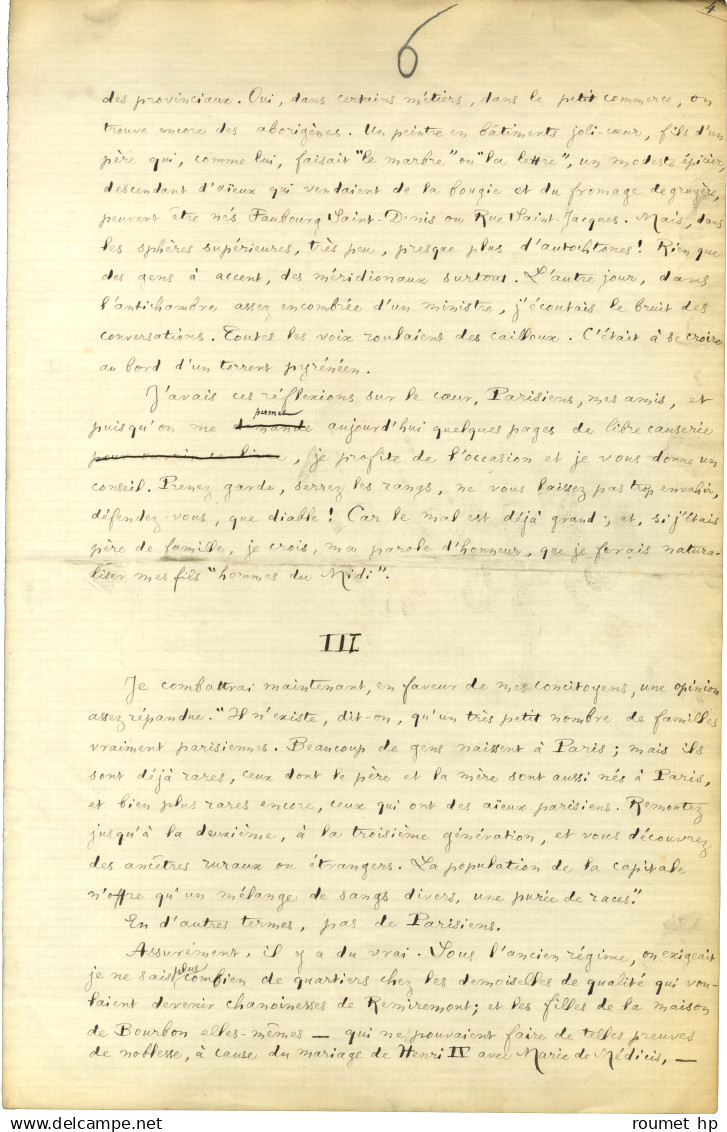 4
6
des provinciaux. Oui, dans certains métiers, dans le petit commerce, on
trouve encore des aborigènes. Un peintre en bâtiments joli-cœur, fils d'un
père qui, comme lui, faisait "le marbre" ou "la lettre", un modeste épicier,
descendant d'aïeux qui vendaient de la bougie et du fromage de gruyère,
peuvent être nés Faubourg Saint-Denis ou Rue Saint-Jacques. Mais, dans
les sphères supérieures, très peu, presque plus d'autochtones! Rien que
des gens à accent, des méridionaux surtout. L'autre jour, dans
l'antichambre assez encombrée d'un ministre, j'écoutais le bruit des
conversations. Toutes les voix roulaient des cailloux. C'était à se croire
au bord d'un torrent pyrénéen.
J'avais ces réflexions sur le cœur, Parisiens, mes amis, et
permet
puisqu'on me demande aujourd'hui quelques pages de libre causerie
pour ouvrir ce livre, je profite de l'occasion et je vous donne un
conseil. Prenez garde, serrez les rangs, ne vous laissez pas trop envahir,
défendez-vous, que diable! Car le mal est déjà grand; et, si j'étais
père de famille, je crois, ma parole d'honneur, que je ferais natura-
liser mes fils "hommes du Midi".
III
Je combattrai maintenant, en faveur de mes concitoyens, une opinion
assez répandue. "Il n'existe, dit-on, qu'un très petit nombre de familles
vraiment parisiennes. Beaucoup de gens naissent à Paris; mais ils
sont déjà rares, ceux dont le père et la mère sont aussi nés à Paris,
et bien plus rares encore, ceux qui ont des aïeux parisiens. Remontez
jusqu'à la deuxième, à la troisième génération, et vous découvrez
des ancêtres ruraux ou étrangers. La population de la capitale
n'offre qu'un mélange de sangs divers, une purée de races."
En d'autres termes, pas de Parisiens.
Assurément, il y a du vrai. Sous l'ancien régime, on exigeait
je ne sais plus combien de quartiers chez les demoiselles de qualité qui vou-
laient devenir chanoinesses de Remiremont; et les filles de la maison
de Bourbon elles-mêmes — qui ne pouvaient faire de telles preuves
de noblesse, à cause du mariage de Henri IV avec Marie de Médicis, —
roumet hp